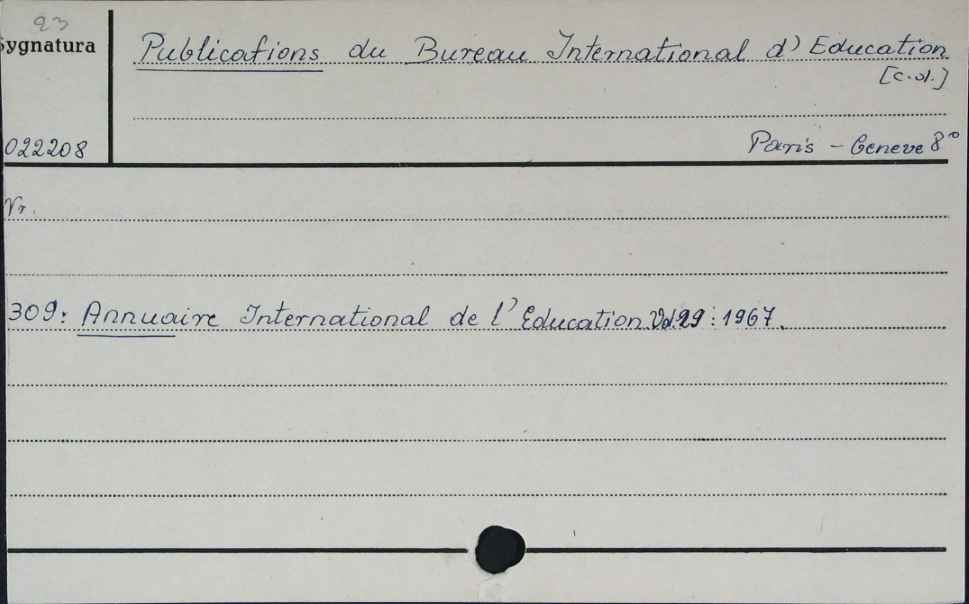 23
Sygnatura
Publications du Bureau International d'Education
[c.d.]
022208
Paris - Geneve 8°
Nr.
309: Annuaire International de l'Education. Vol. 29 : 1967.